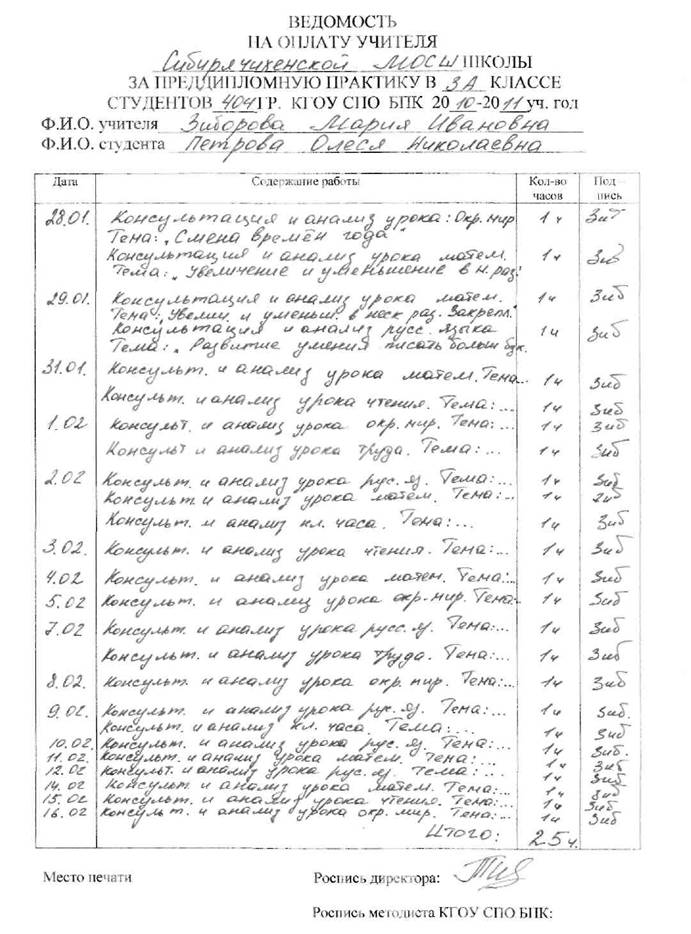 ВЕДОМОСТЬ
НА ОПЛАТУ УЧИТЕЛЯ
Сибирячихенской МОСШ ШКОЛЫ
ЗА ПРЕДДИПЛОМНУЮ ПРАКТИКУ В 3А КЛАССЕ
СТУДЕНТОВ 404 ГР. КГОУ СПО БПК 2010-2011 уч. год
Ф.И.О. учителя Зиборова Мария Ивановна
Ф.И.О. студента Петрова Олеся Николаевна
Дата Содержание работы Кол-во часов Под–пись
28.01. Консультация и анализ урока: Окр. мир 1ч Зиб
Тема: „Смена времён года"
Консультация и анализ урока матем. 1ч Зиб
Тема: „Увеличение и уменьшение в н. раз.
29.01. Консультация и анализ урока матем. 1ч Зиб
Тема: „Увелич. и уменьш. в неск раз. Закрепл."
Консультация и анализ русс. языка 1ч Зиб
Тема: „Развитие умения писать больш бук.
31.01. Консульт. и анализ урока матем. Тема... 1ч Зиб
Консульт. и анализ урока чтения. Тема:... 1ч Зиб
1.02 Консульт. и анализ урока окр. мир. Тема:... 1ч Зиб
Консульт и анализ урока труда. Тема:... 1ч Зиб
2.02 Консульт. и анализ урока рус. яз. Тема:... 1ч Зиб
Консульт. и анализ урока матем. Тема:... 1ч Зиб
Консульт. и анализ кл. часа. Тема:... 1ч Зиб
3.02. Консульт. и анализ урока чтения. Тема:... 1ч Зиб
4.02 Консульт. и анализ урока матем. Тема:.. 1ч Зиб
5.02 Консульт. и анализ урока окр. мир. Тема:.. 1ч Зиб
7.02 Консульт. и анализ урока русс. яз. Тема:... 1ч Зиб
Консульт. и анализ урока труда. Тема:... 1ч Зиб
8.02. Консульт. и анализ урока окр. мир. Тема:... 1ч Зиб
9.02. Консульт. и анализ урока рус. яз. Тема:... 1ч Зиб.
Консульт. и анализ кл. часа. Тема:... 1ч Зиб
10.02. Консульт. и анализ урока рус. яз. Тема:... 1ч Зиб.
11.02. Консульт. и анализ урока матем. Тема:... 1ч Зиб
12.02 Консульт. и анализ урока рус. яз. Тема:... 1ч Зиб
14.02 Консульт. и анализ урока матем. Тема:... 1ч Зиб
15.02 Консульт. и анализ урока чтения. Тема:... 1ч Зиб
16.02 Консульт. и анализ урока окр. мир. Тема:... 1ч Зиб
Итого: 25ч.
Место печати Роспись директора:
Роспись методиста КГОУ СПО БПК: